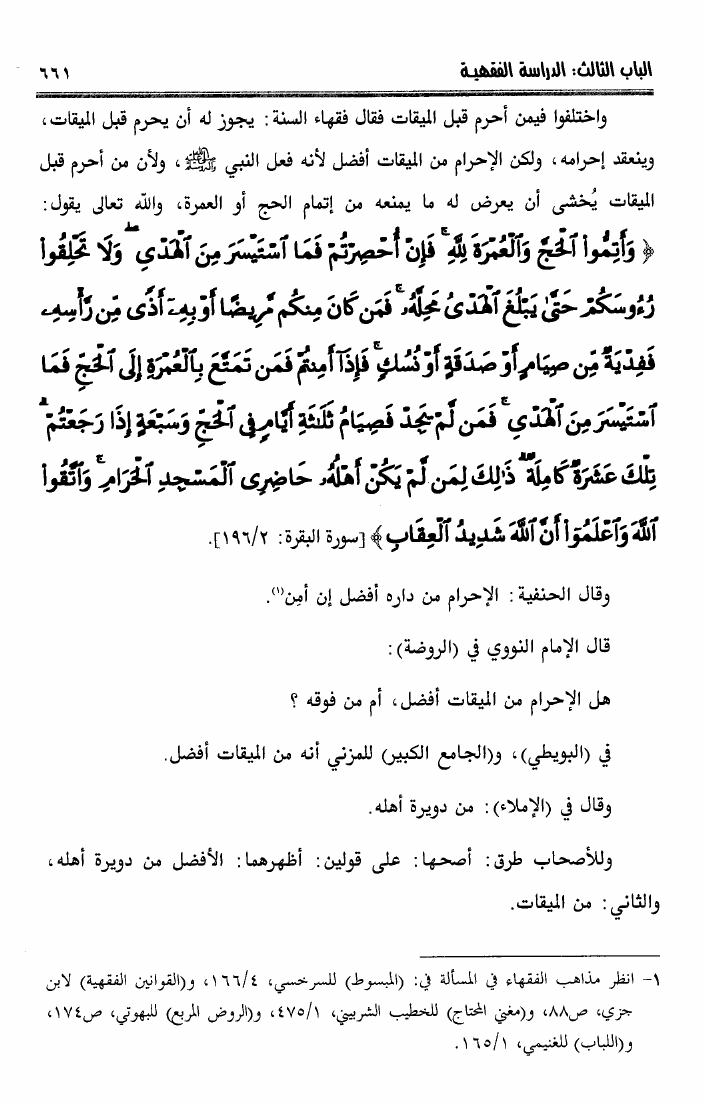 الباب الثالث: الدراسة الفقهية ٦٦١
واختلفوا فيمن أحرم قبل الميقات فقال فقهاء السنة: يجوز له أن يحرم قبل الميقات،
وينعقد إحرامه، ولكن الإحرام من الميقات أفضل لأنه فعل النبي ﷺ، ولأن من أحرم قبل
الميقات يُخشى أن يعرض له ما يمنعه من إتمام الحج أو العمرة، والله تعالى يقول:
﴿ وَأَتِمُّوا۟ ٱلْحَجَّ وَٱلْعُمْرَةَ لِلَّهِ ۚ فَإِنْ أُحْصِرْتُمْ فَمَا ٱسْتَيْسَرَ مِنَ ٱلْهَدْىِ ۖ وَلَا تَحْلِقُوا۟
رُءُوسَكُمْ حَتَّىٰ يَبْلُغَ ٱلْهَدْىُ مَحِلَّهُۥ ۚ فَمَن كَانَ مِنكُم مَّرِيضًا أَوْ بِهِۦٓ أَذًى مِّن رَّأْسِهِۦ
فَفِدْيَةٌ مِّن صِيَامٍ أَوْ صَدَقَةٍ أَوْ نُسُكٍ ۚ فَإِذَآ أَمِنتُمْ فَمَن تَمَتَّعَ بِٱلْعُمْرَةِ إِلَى ٱلْحَجِّ فَمَا
ٱسْتَيْسَرَ مِنَ ٱلْهَدْىِ ۚ فَمَن لَّمْ يَجِدْ فَصِيَامُ ثَلَٰثَةِ أَيَّامٍ فِى ٱلْحَجِّ وَسَبْعَةٍ إِذَا رَجَعْتُمْ ۗ
تِلْكَ عَشَرَةٌ كَامِلَةٌ ۗ ذَٰلِكَ لِمَن لَّمْ يَكُنْ أَهْلُهُۥ حَاضِرِى ٱلْمَسْجِدِ ٱلْحَرَامِ ۚ وَٱتَّقُوا۟
ٱللَّهَ وَٱعْلَمُوٓا۟ أَنَّ ٱللَّهَ شَدِيدُ ٱلْعِقَابِ ﴾ [سورة البقرة: ١٩٦/٢].
وقال الحنفية: الإحرام من داره أفضل إن أمِن(١).
قال الإمام النووي في (الروضة):
هل الإحرام من الميقات أفضل، أم من فوقه ؟
في (البويطي)، و(الجامع الكبير) للمزني أنه من الميقات أفضل.
وقال في (الإملاء): من دويرة أهله.
وللأصحاب طرق: أصحها: على قولين: أظهرهما: الأفضل من دويرة أهله،
والثاني: من الميقات.
١- انظر مذاهب الفقهاء في المسألة في: (المبسوط) للسرخسي، ١٦٦/٤، و(القوانين الفقهية) لابن
جزي، ص٨٨، و(مغني المحتاج) للخطيب الشربيني، ٤٧٥/١، و(الروض المربع) للبهوتي، ص١٧٤،
و(اللباب) للغنيمي، ١٦٥/١.